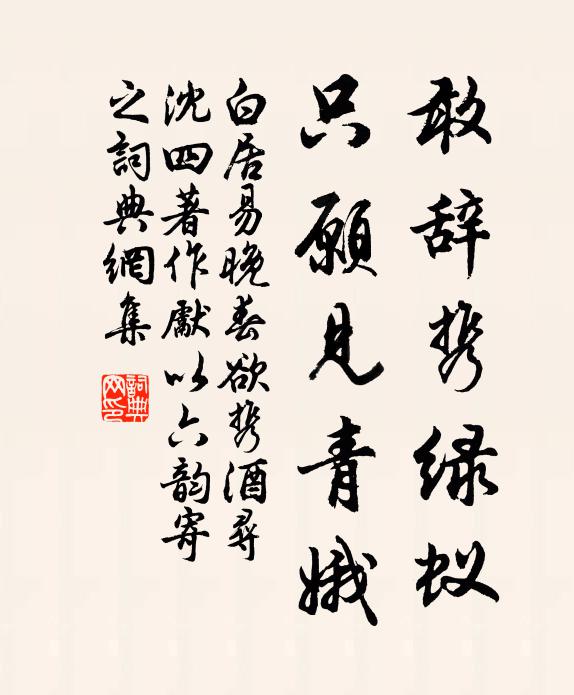 敢辞携绿蚁
只願見青娥
白居易晚春欲携酒尋
沈四著作獻以六韵寄
之詞典網集
詞典网印